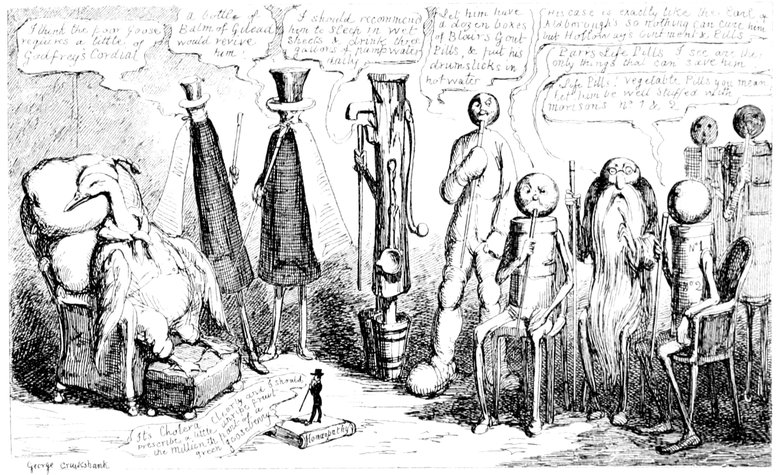 I think the poor goose
requires a little of
Godfrey's Cordial
a bottle of
Balm of Gilead
would revive
him
I should recommend
him to sleep in wet
sheets & drink three
gallons of pump water
daily
Let him have
a dozen boxes
of Blair's Gout
Pills, & put his
drumsticks in
hot water
His case is exactly like the Earl of
Aldborough's so nothing can cure him
but Holloways Ointment & Pills
Parrs Life Pills I see are the
only things that can save him
Life Pills! Vegetable Pills you mean
let him be well stuffed with
Morisons No 1 & 2
No 2
Its Cholera, clearly and I should
prescribe a little
the millionth part of a
green gooseberry
Homœopathy
George Cruikshank